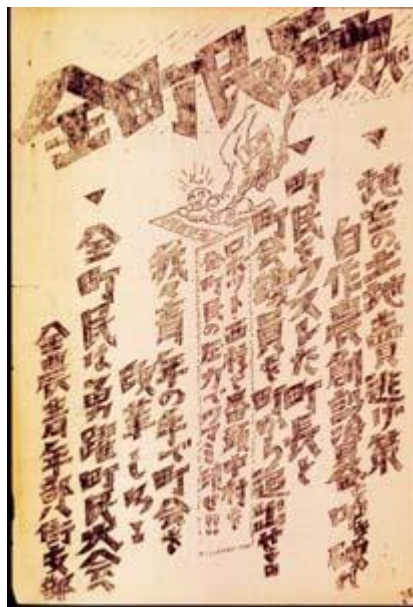 全町民
▼地主の土地賣逃げ策
自作農創設資金を叩き砕け
▼町民を 町長と
町会議員を町から追出せ!
ロボット西村と番頭中村を
全町民の圧力で 潰せ!!
我々青年の手で町会を
改革しろ!
▼全町民は勇躍町民大会へ
全農青年部八街支部